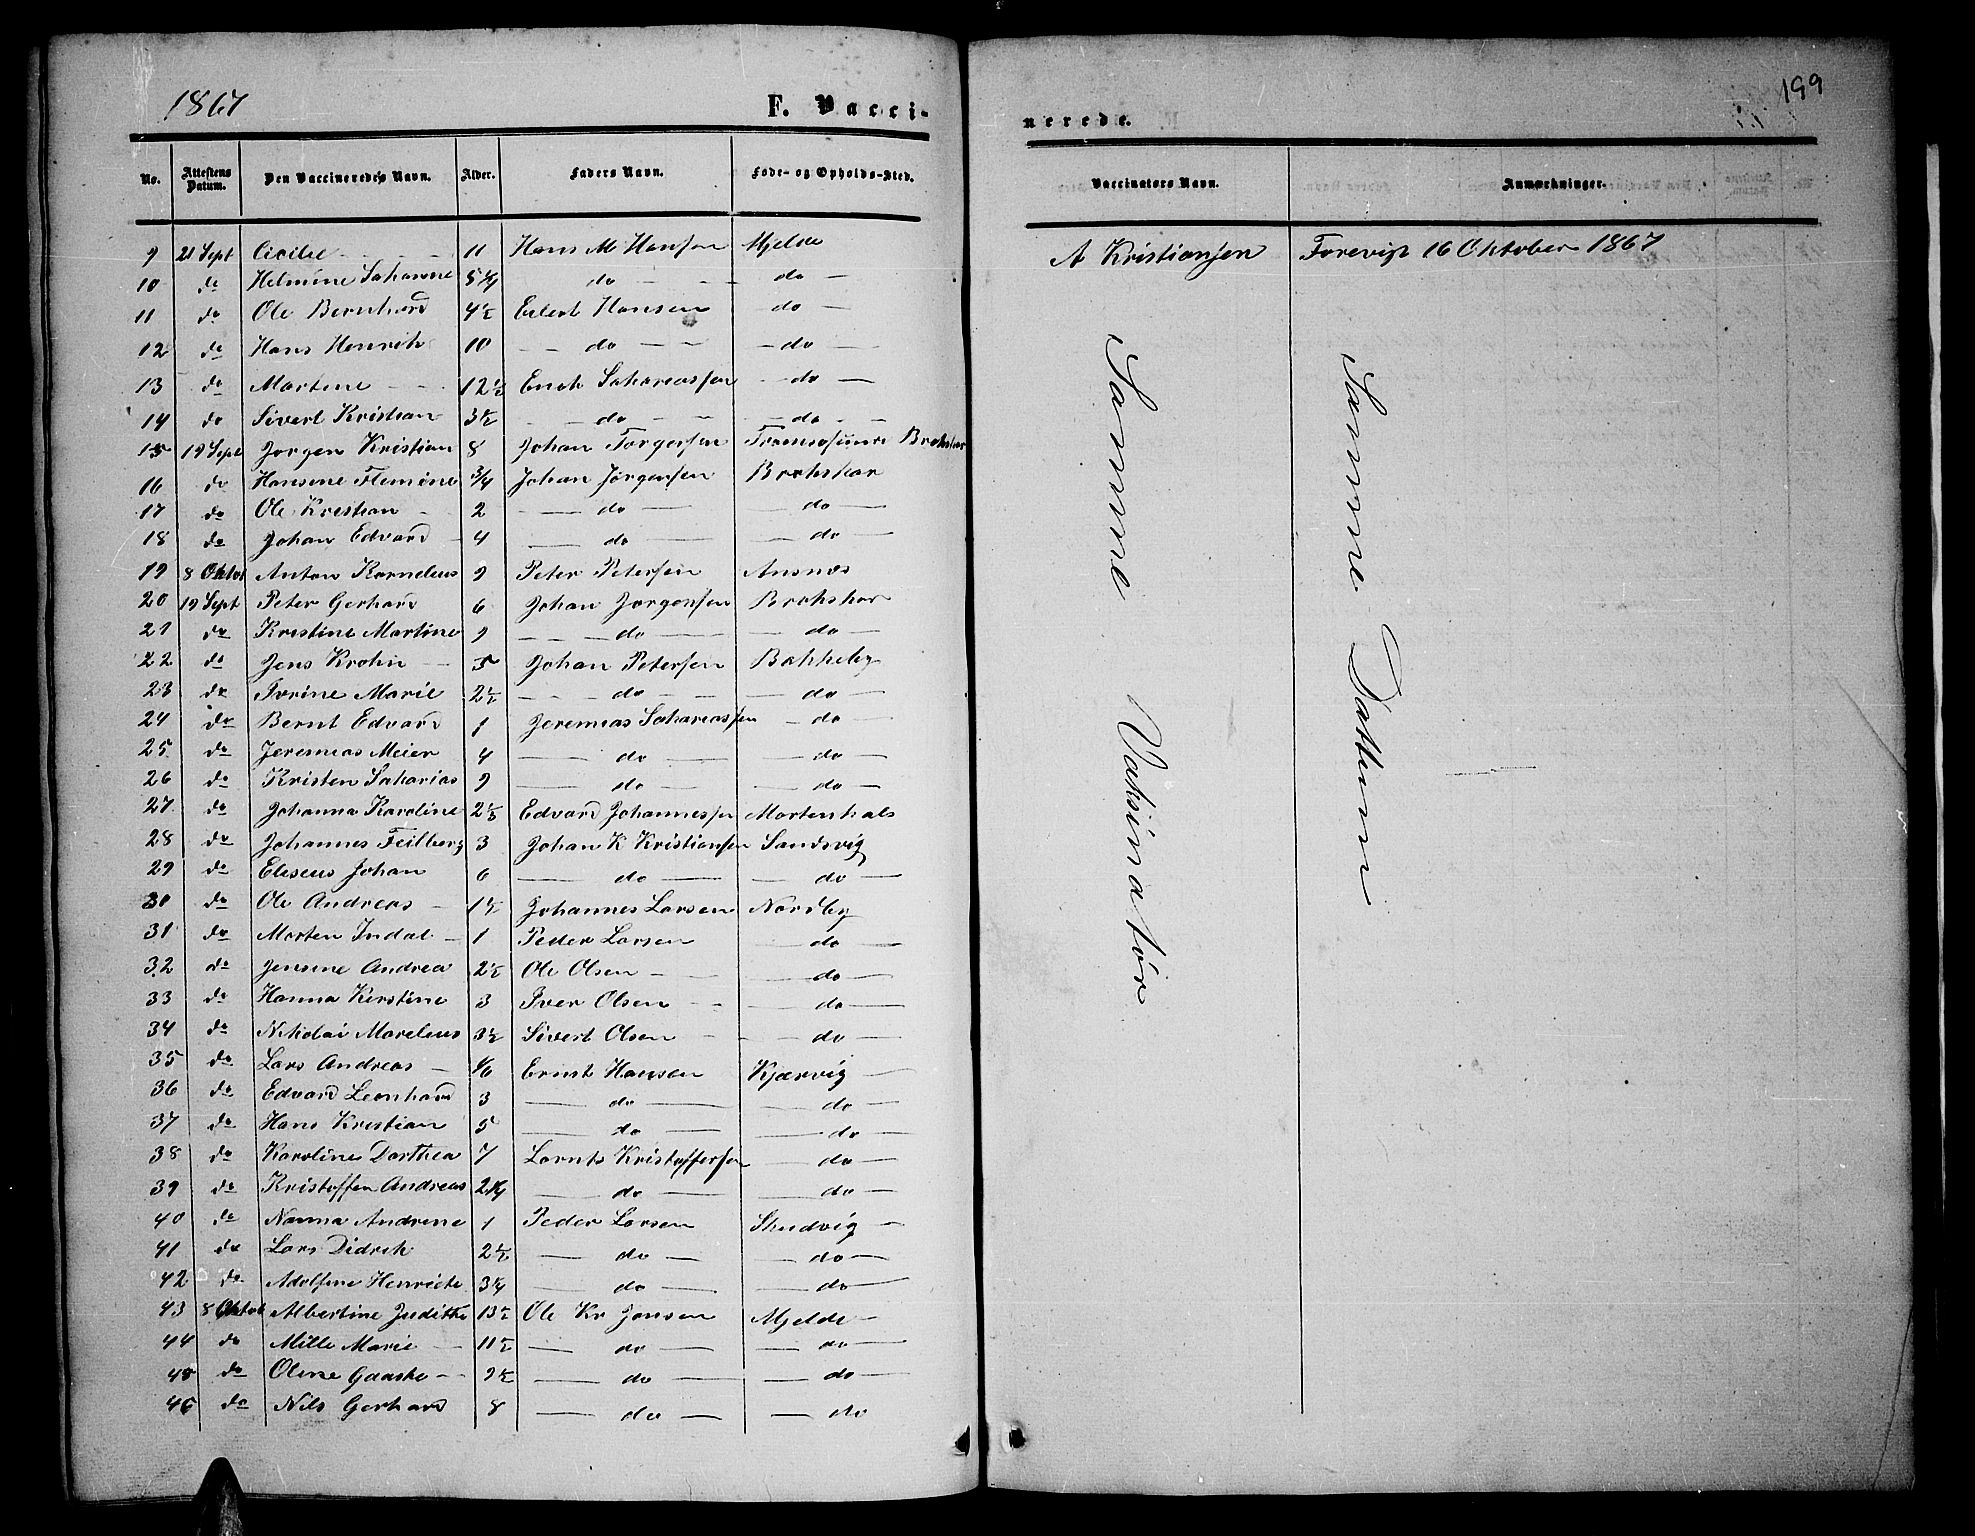 1867 F. Vacci-
No. Attestens Datum. Den Vaccineredes Navn. Alder. Faders Navn. Føde- og Opholds-Sted.
9 21 Sept Cicilie 11 Hans M Hansen Mjelde
10 do Helmine Johanne 5 1/4 do do
11 do Ole Bernhard 4 1/2 Edert Hansen do
12 do Hans Henrik 10 do do
13 do Martine 12 1/2 Enok Sakariassen do
14 do Sivert Kristian 3 1/2 do do
15 19 Sept Jørgen Kristian 8 Johan Torgersen Brokskar
16 do Hansine Flemine 3/4 Johan Jørgensen Brokskar
17 do Ole Kristian 2 do do
18 do Johan Edvard 4 do do
19 8 Oktob Anton Kornelius 9 Peter Petersen Ansnes
20 19 Sept Peter Gerhard 6 Johan Jørgensen Brokskar
21 do Kristine Martine 9 do do
22 do Jens Krohn 5 Johan Petersen Bakkeby
23 do Ivrine Marie 2 1/2 do do
24 do Bernt Edvard 1 Jeremias Sakariassen do
25 do Jeremias Meier 4 do do
26 do Kristen Sakarias 9 do do
27 do Johanna Karoline 2 1/2 Edvard Johannessen Mortenhals
28 do Johannes Feilberg 3 Johan K Kristiansen Sandsvig
29 do Eliseus Johan 6 do do
30 do Ole Andreas 1 1/2 Johannes Larsen Nordby
31 do Morten Indal 1 Peder Larsen do
32 do Jensine Andrea 2 1/2 Ole Olsen do
33 do Hanna Kirstine 3 Iver Olsen do
34 do Nikolai Marelius 3 1/2 Sivert Olsen do
35 do Lars Andreas 1/6 Ernst Hansen Kjærvig
36 do Edvard Leonhard 3 do do
37 do Hans Kristian 5 do do
38 do Karoline Dorthea 7 Lornts Kristoffersen do
39 do Kristoffer Andreas 2 1/4 do do
40 do Nanna Andrine 1 Peder Larsen Skudvig
41 do Lars Didrik 2 1/2 do do
42 do Adolfine Henriete 3 1/4 do do
43 8 Oktob Albertine Judithe 13 1/2 Ole Kr Jansen Mjelde
44 do Mille Marie 11 1/2 do do
45 do Oline Gaaske 9 1/2 do do
46 do Nils Gerhard 8 do do
199
nerede.
Vaccinators Navn. Anmærkninger.
A Kristiansen Forevist 16 Oktober 1867
Samme Vaksinatør
Samme Dattum